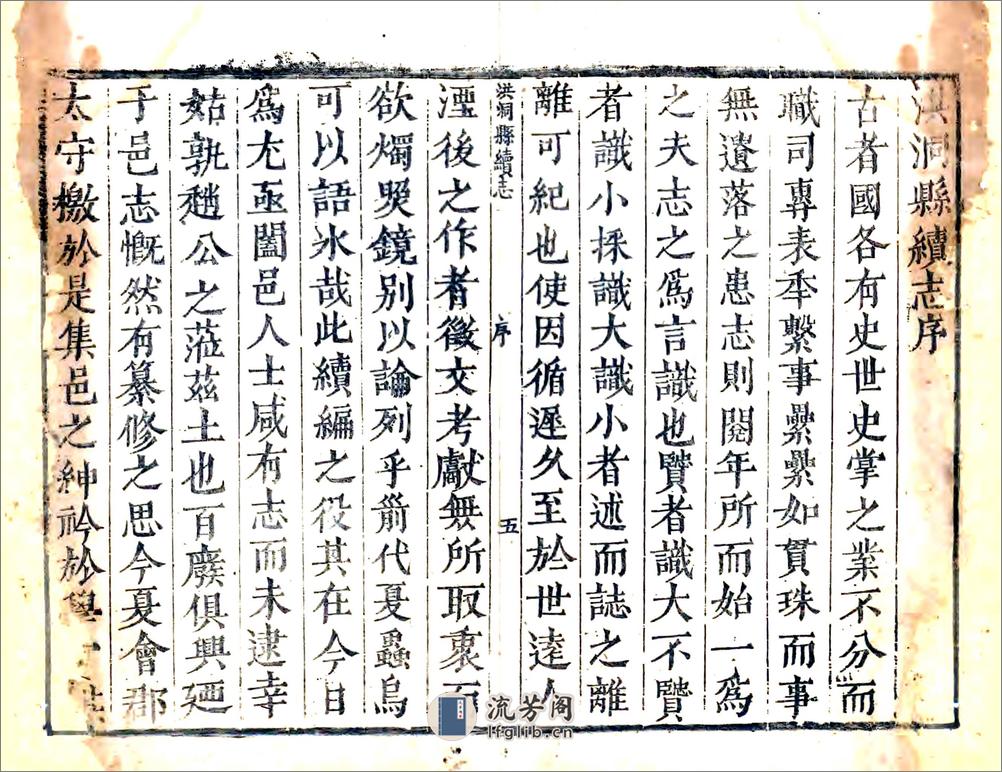 洪洞縣續志序
古者國各有史世史掌之業不分而
職司專表年繫事纍纍如貫珠而事
無遺落之患志則閱年所而始一為
之夫志之為言識也賢者識大不賢
者識小採識大識小者述而誌之離
離可紀也使因循遲久至於世遠人
洪洞縣續志
序
五
湮後之作者徵文考獻無所取衷而
欲燭照鏡別以論列乎前代夏蟲烏
可以語冰哉此續編之役其在今日
為尤亟闔邑人士咸有志而未逮幸
姑孰趙公之蒞茲土也百廢俱興廼
于邑志慨然有纂修之思今夏會郡
太守檄於是集邑之紳衿於學
流芳阁
lfglib.cn